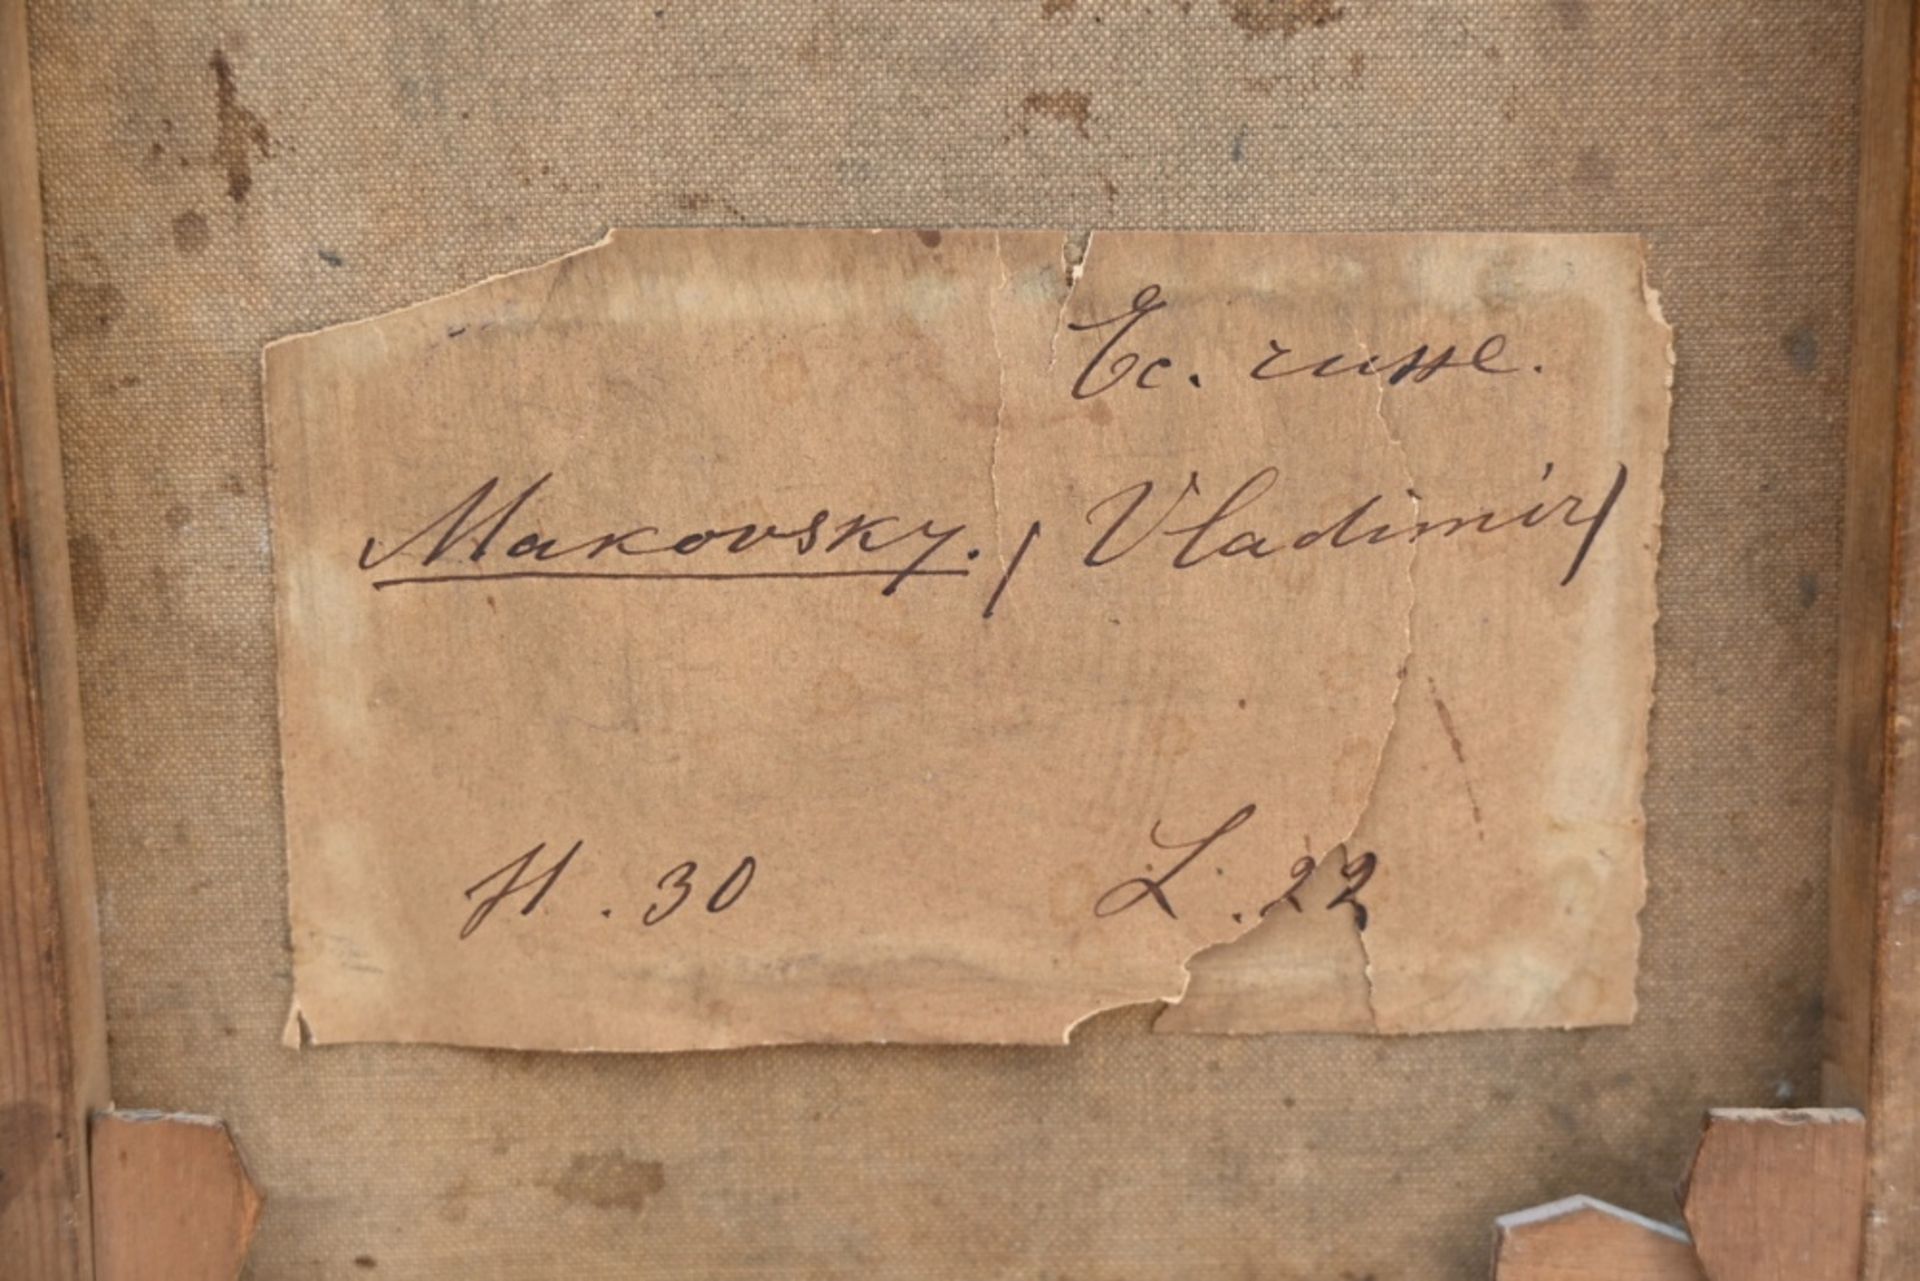 Ec. russe.
Makovsky. (Vladimir)
H. 30 L. 22